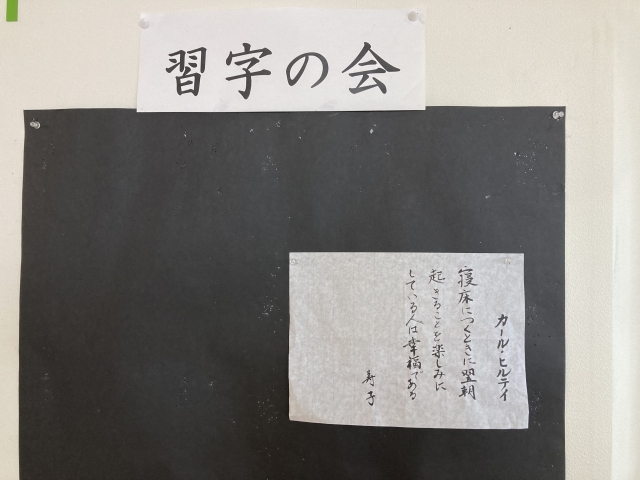 習字の会
カール・ヒルティ
寝床につくときに翌朝
起きることを楽しみに
している人は幸福である
寿子